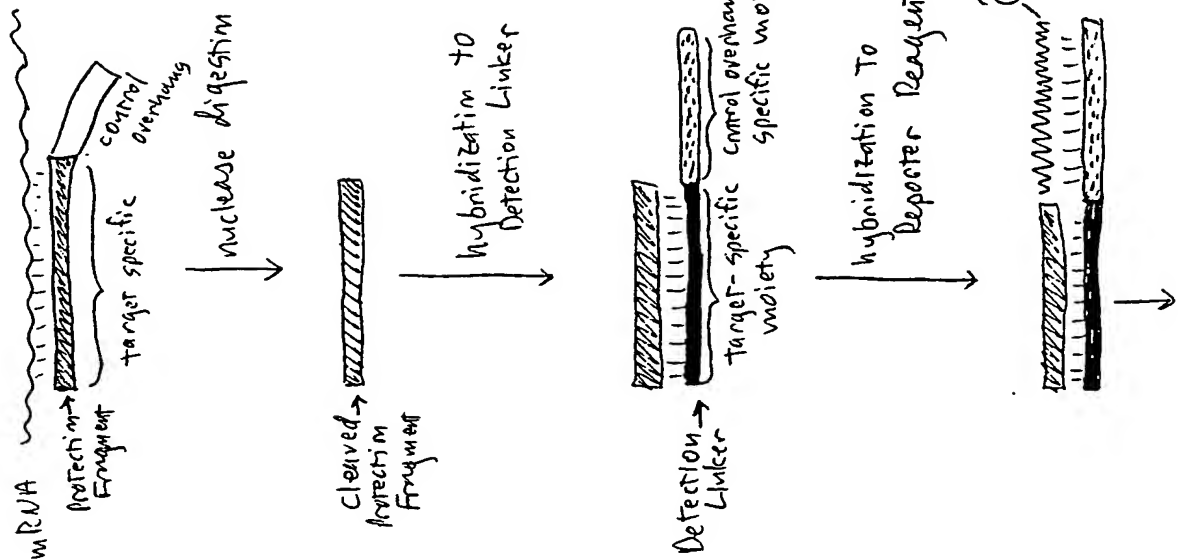 mRNA
Protection →
Fragment
target specific
control
overhang
nuclease digestion
Cleaved →
Protection
Fragment
hybridization to
Detection Linker
Detection →
Linker
Target-specific
moiety
specific
hybridization To
Reporter